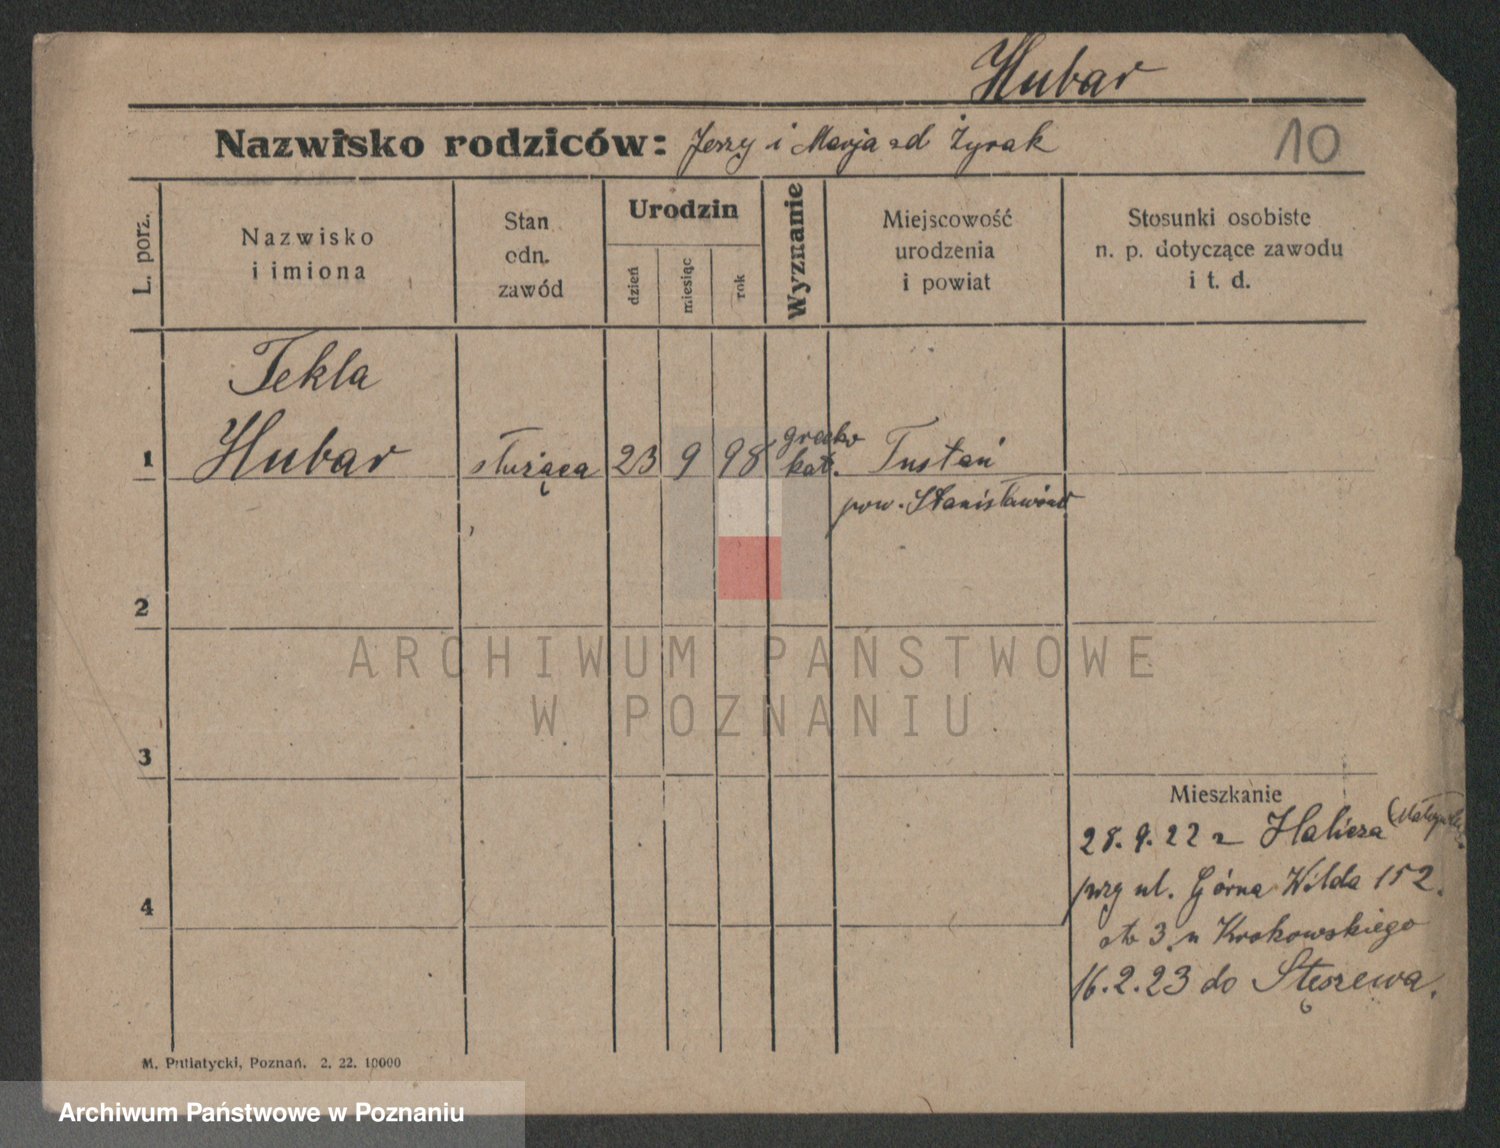 Hubar
Nazwisko rodziców: Jerzy i Marja z d Żyrak
10
L. porz.
Nazwisko
i imiona
Stan
odn.
zawód
Urodzin
dzień
miesiąc
rok
Wyznanie
Miejscowość
urodzenia
i powiat
Stosunki osobiste
n. p. dotyczące zawodu
i t. d.
Tekla
1 Hubar służąca 23 9 98 grecko kat. Tustań
pow. Stanisławów
2
ARCHIWUM PAŃSTWOWE
W POZNANIU
3
Mieszkanie
28.9.22 z Halicza
przy ul. Górna Wilda 152.
3 u Krokowskiego
16.2.23 do Stęszewa.
4
M. Putiatycki, Poznań. 2. 22. 10000
Archiwum Państwowe w Poznaniu